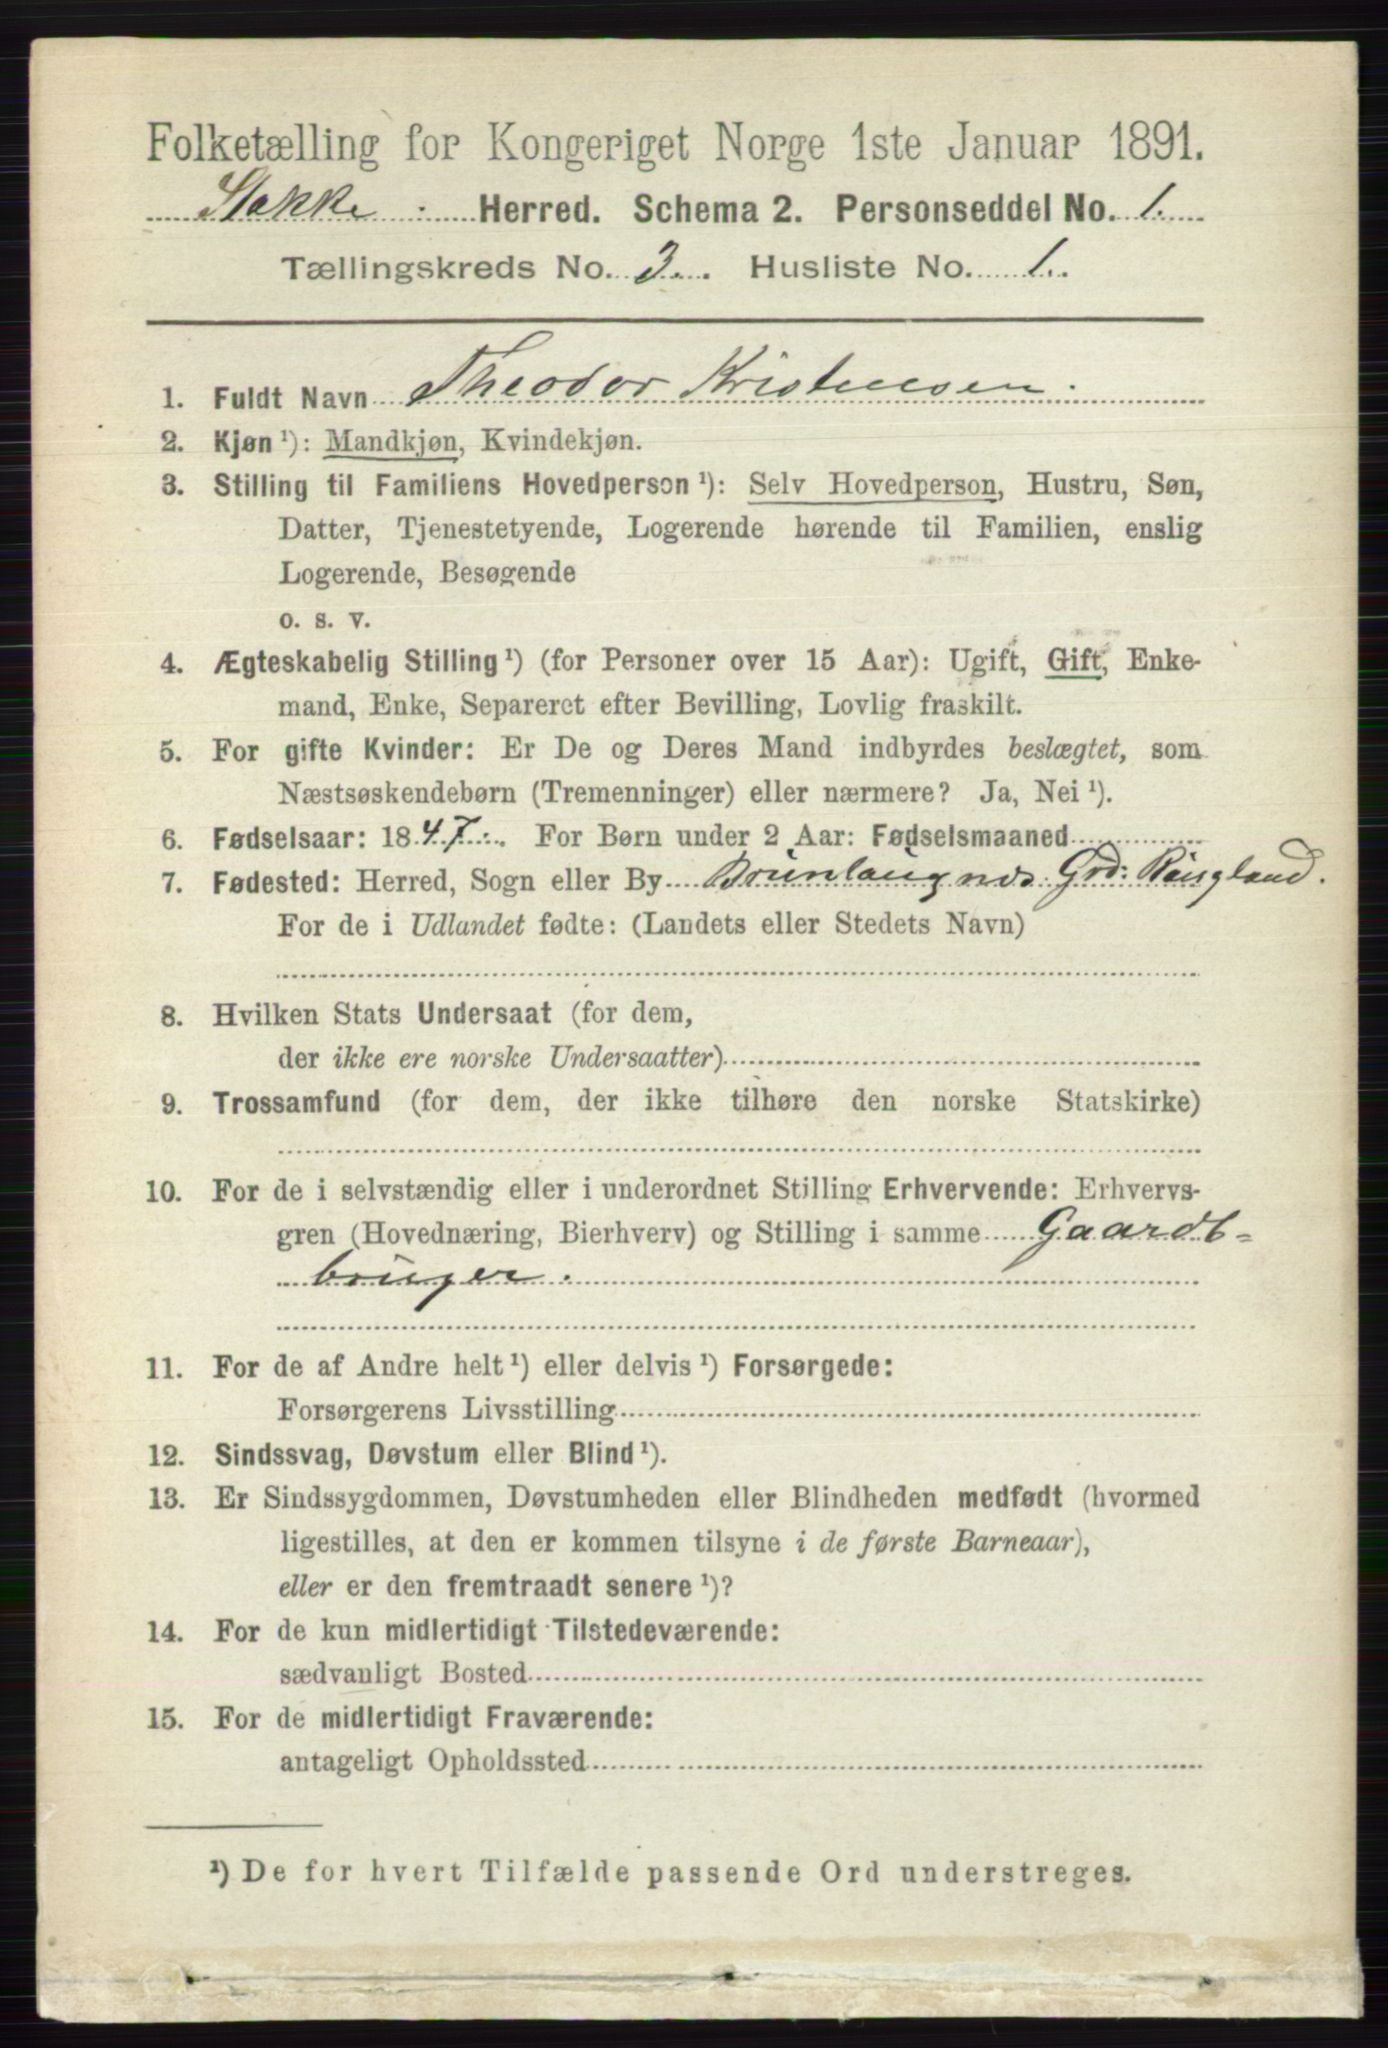 Folketælling for Kongeriget Norge 1ste Januar 1891.
Stokke Herred. Schema 2. Personseddel No. 1.
Tællingskreds No. 3. Husliste No. 1.
1. Fuldt Navn Theodor Kristensen.
2. Kjøn ¹): Mandkjøn, Kvindekjøn.
3. Stilling til Familiens Hovedperson ¹): Selv Hovedperson, Hustru, Søn,
Datter, Tjenestetyende, Logerende hørende til Familien, enslig
Logerende, Besøgende
o. s. v.
4. Ægteskabelig Stilling ¹) (for Personer over 15 Aar): Ugift, Gift, Enke-
mand, Enke, Separeret efter Bevilling, Lovlig fraskilt.
5. For gifte Kvinder: Er De og Deres Mand indbyrdes beslægtet, som
Næstsøskendebørn (Tremenninger) eller nærmere? Ja, Nei ¹).
6. Fødselsaar: 1847. For Børn under 2 Aar: Fødselsmaaned
7. Fødested: Herred, Sogn eller By Brunlaugnæs Grd: Ringland.
For de i Udlandet fødte: (Landets eller Stedets Navn)
8. Hvilken Stats Undersaat (for dem,
der ikke ere norske Undersaatter)
9. Trossamfund (for dem, der ikke tilhøre den norske Statskirke)
10. For de i selvstændig eller i underordnet Stilling Erhvervende: Erhvervs-
gren (Hovednæring, Bierhverv) og Stilling i samme Gaardb-
bruger.
11. For de af Andre helt ¹) eller delvis ¹) Forsørgede:
Forsørgerens Livsstilling
12. Sindssvag, Døvstum eller Blind ¹).
13. Er Sindssygdommen, Døvstumheden eller Blindheden medfødt (hvormed
ligestilles, at den er kommen tilsyne i de første Barneaar),
eller er den fremtraadt senere ¹)?
14. For de kun midlertidigt Tilstedeværende:
sædvanligt Bosted
15. For de midlertidigt Fraværende:
antageligt Opholdssted
¹) De for hvert Tilfælde passende Ord understreges.